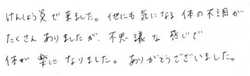 けんしょう炎で来ました。他にも気になる体の不調が
たくさんありましたが、不思議な感じで
体が楽になりました。ありがとうございました。